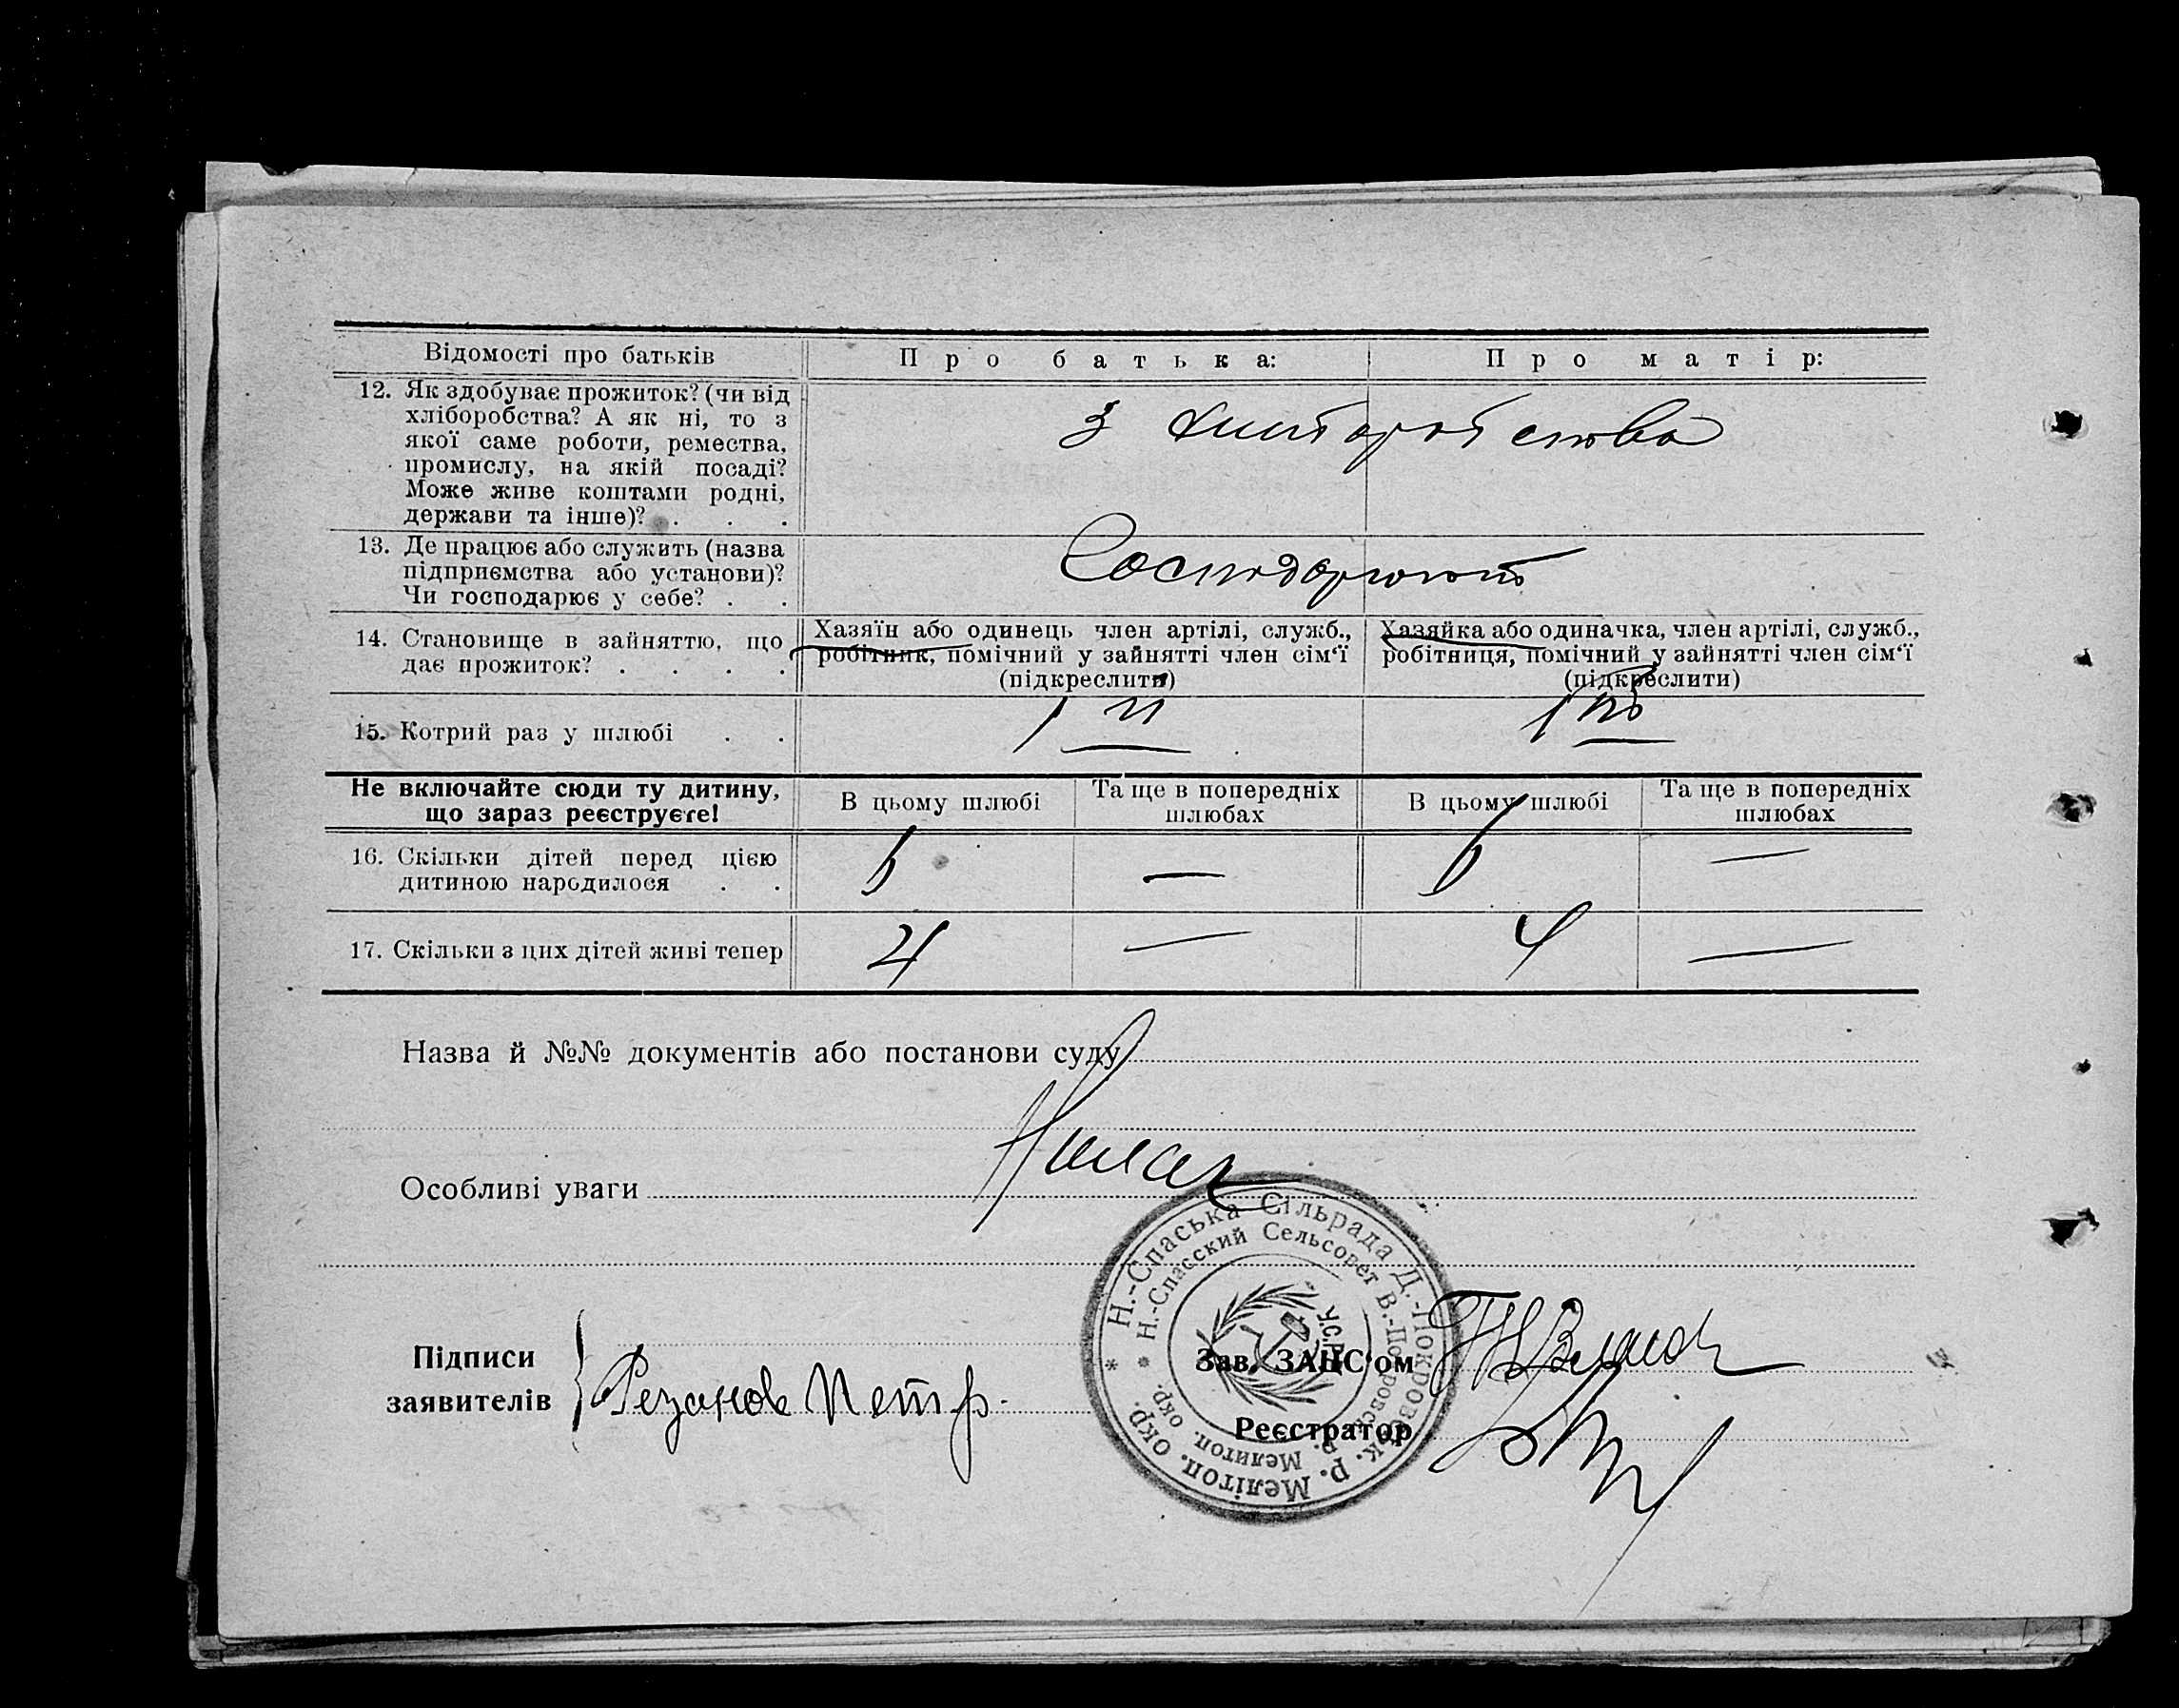 Відомості про батьків
Про батька:
Про матір:
12. Як здобуває прожиток? (чи від
хліборобства? А як ні, то з
якої саме роботи, ремества,
промислу, на якій посаді?
Може живе коштами родні,
держави та інше)? . . .
З хліборобства
13. Де працює або служить (назва
підприємства або установи)?
Чи господарює у себе? . .
Господарюють
14. Становище в зайняттю, що
дає прожиток? . . . .
Хазяїн або одинець член артілі, служб.,
робітник, помічний у зайнятті член сім'ї
(підкреслити)
Хазяйка або одиначка, член артілі, служб.,
робітниця, помічний у зайнятті член сім'ї
(підкреслити)
15. Котрий раз у шлюбі . .
1 й
1
Не включайте сюди ту дитину,
що зараз реєструєте!
В цьому шлюбі
Та ще в попередніх
шлюбах
В цьому шлюбі
Та ще в попередніх
шлюбах
16. Скільки дітей перед цією
дитиною народилося . .
— —
17. Скільки з цих дітей живі тепер
4 — 4 —
Назва й №№ документів або постанови суду
Немає
Особливі уваги
Н.-Спаська Сільрада Д.-Покровськ. р. Мелітоп. окр.
Н.-Спасский Сельсовет В.-Покровск. р. Мелитоп. окр.
У.С.Р.Р.
Підписи
заявителів
Резанов Петр.
Зав. ЗАЦС'ом
Реєстратор